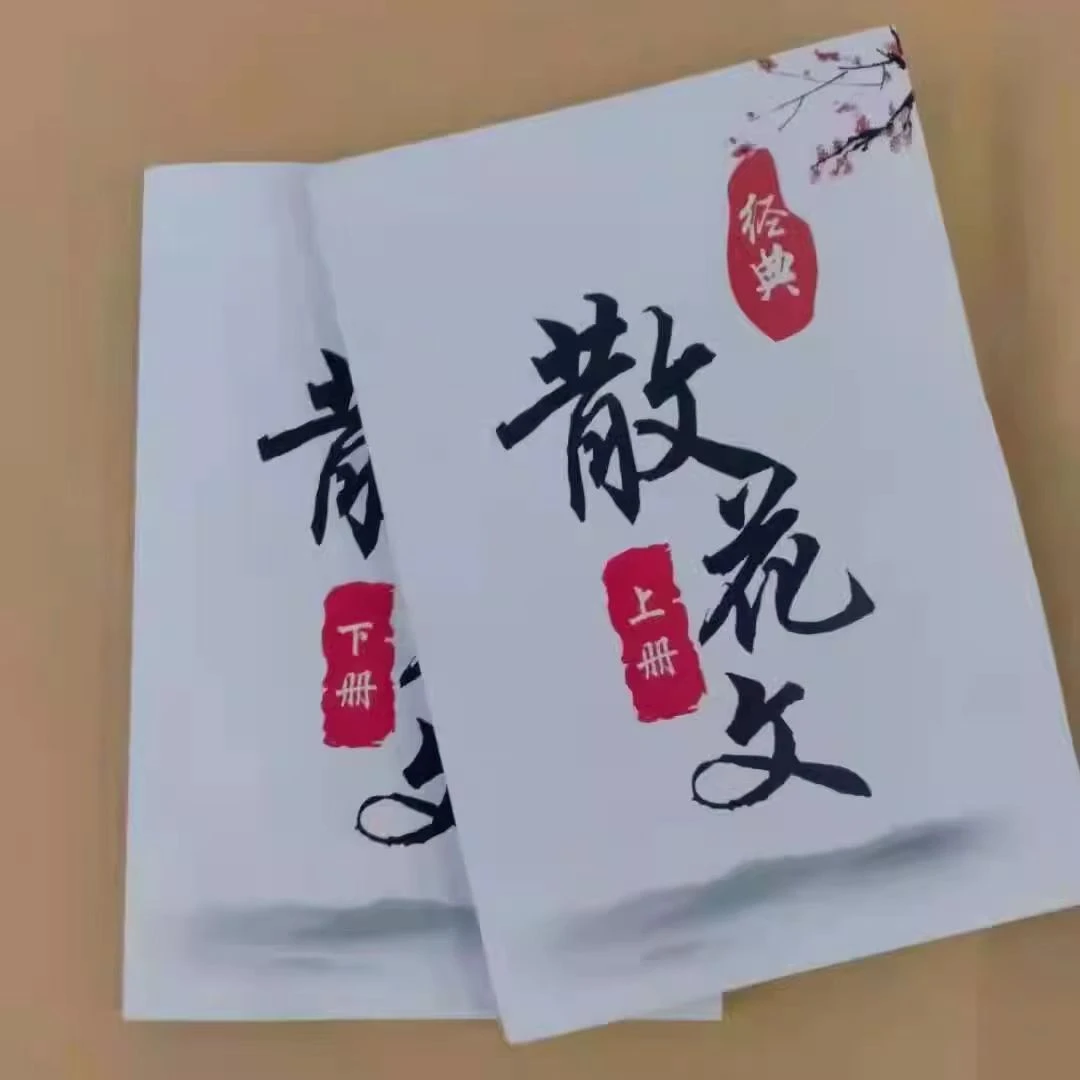 经典
散花文
上册
散
下册
文